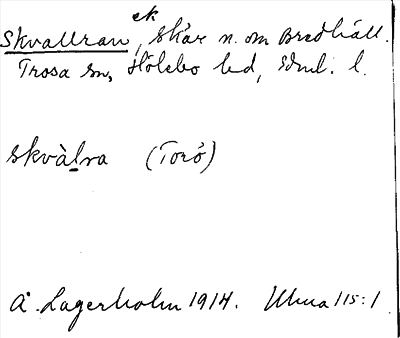 ek
Skvallran, skär n. om Bredhäll.
Trosa sn, Hölebo hd, Sdml. l.
skvàlra (Torö)
Å. Lagerholm 1914. Uhua 115:1